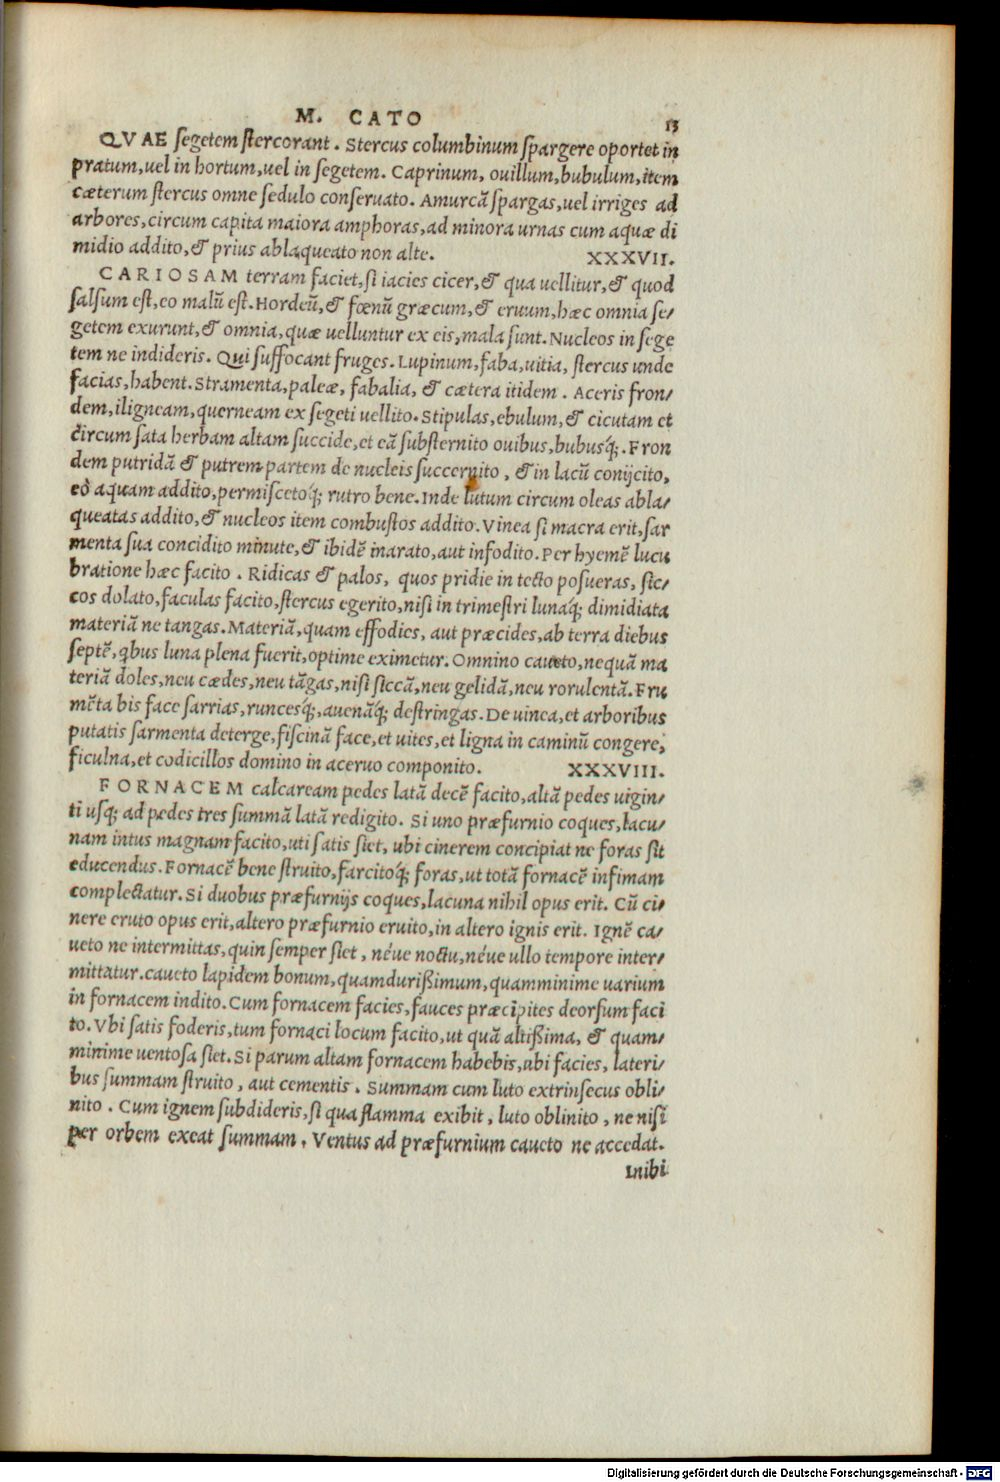 M. CATO
13
QVAE ſegetem ſtercorant. Stercus columbinum ſpargere oportet in
pratum,uel in hortum,uel in ſegetem. Caprinum, ouillum,bubulum,item
cæterum ſtercus omne ſedulo conſeruato. Amurcã ſpargas,uel irriges ad
arbores,circum capita maiora amphoras,ad minora urnas cum aquæ di
midio addito,& prius ablaqueato non alte. XXXVII.
CARIOSAM terram faciet,ſi iacies cicer,& qua uellitur,& quod
ſalſum eſt,eo malũ eſt. Hordeũ,& fœnũ græcum,& eruum,hæc omnia ſe/
getem exurunt,& omnia,quæ uelluntur ex eis,mala ſunt. Nucleos in ſege
tem ne indideris. Qui ſuffocant fruges. Lupinum,faba,uitia, ſtercus unde
facias,habent. Stramenta,paleæ, fabalia, & cætera itidem. Aceris fron/
dem,iligneam,querneam ex ſegeti uellito. Stipulas,ebulum,& cicutam et
circum ſata herbam altam ſuccide,et eã ſubſternito ouibus,bubusq́;. Fron
dem putridã & putrem partem de nucleis ſuccernito, & in lacũ conijcito,
eò aquam addito,permiſcetoq́; rutro bene. Inde lutum circum oleas abla/
queatas addito,& nucleos item combuſtos addito. Vinea ſi macra erit,ſar
menta ſua concidito minute,& ibidẽ inarato,aut infodito. Per hyemẽ lucu
bratione hæc facito. Ridicas & palos, quos pridie in tecto poſueras, ſic/
cos dolato,faculas facito,ſtercus egerito,niſi in trimeſtri lunaq́; dimidiata
materiã ne tangas. Materiã,quam effodies, aut præcides,ab terra diebus
ſeptẽ, qbus luna plena fuerit,optime eximetur. Omnino caueto,nequã ma
teriã doles,neu cædes,neu tãgas,niſi ſiccã,neu gelidã,neu rorulentã. Fru
mẽta bis face ſarrias,runcesq́;,auenãq́; deſtringas. De uinea,et arboribus
putatis ſarmenta deterge,fiſcinã face,et uites,et ligna in caminũ congere,
ficulna,et codicillos domino in aceruo componito. XXXVIII.
FORNACEM calcaream pedes latã decẽ facito,altã pedes uigin/
ti uſq; ad pedes tres ſummã latã redigito. Si uno præfurnio coques,lacu/
nam intus magnam facito,uti ſatis ſiet, ubi cinerem concipiat ne foras ſit
educendus. Fornacẽ bene ſtruito,farcitoq́; foras,ut totã fornacẽ infimam
complectatur. Si duobus præfurnijs coques,lacuna nihil opus erit. Cũ ci/
nere eruto opus erit,altero præfurnio eruito,in altero ignis erit. Ignẽ ca/
ueto ne intermittas,quin ſemper ſiet, néue noctu,néue ullo tempore inter/
mittatur.caueto lapidem bonum,quamduriſſimum,quamminime uarium
in fornacem indito. Cum fornacem facies,fauces præcipites deorſum faci
to. Vbi ſatis foderis,tum fornaci locum facito,ut quã altiſſima, & quam/
minime uentoſa ſiet. Si parum altam fornacem habebis,ubi facies, lateri/
bus ſummam ſtruito, aut cementis. Summam cum luto extrinſecus obli/
nito. Cum ignem ſubdideris,ſi qua flamma exibit, luto oblinito, ne niſi
per orbem exeat ſummam. Ventus ad præfurnium caueto ne accedat.
Inibi
Digitalisierung gefördert durch die Deutsche Forschungsgemeinschaft - DFG